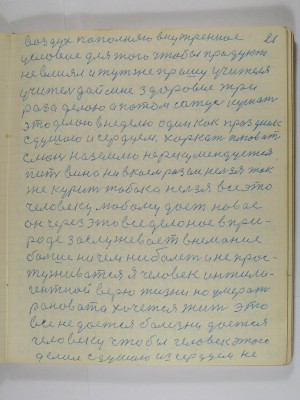 21
воздух наполняю внутренное
целовае для того чтобы продукт
не влиял и тутже прашу учителя
учитель дай мне здоровие три
раза делаю а потом сажус кушат
это делаю внеделю один как праздник
с душою и сердцем. Харкат плеват
слюну на землю нерекумендуется
пит вино ни вкоем разам нелзя так
же курит табака нелзя все это
человеку любому дает новае
он через это все делоное в при-
роде заслужевает внемание
болше ничем ни болет и не прос-
туживатся Я человек интили-
гентной верю жизни но умерат
рановата хочется жит это
все не дается болзни дается
человеку чтобы человек этого
делал с душою и сердцем не